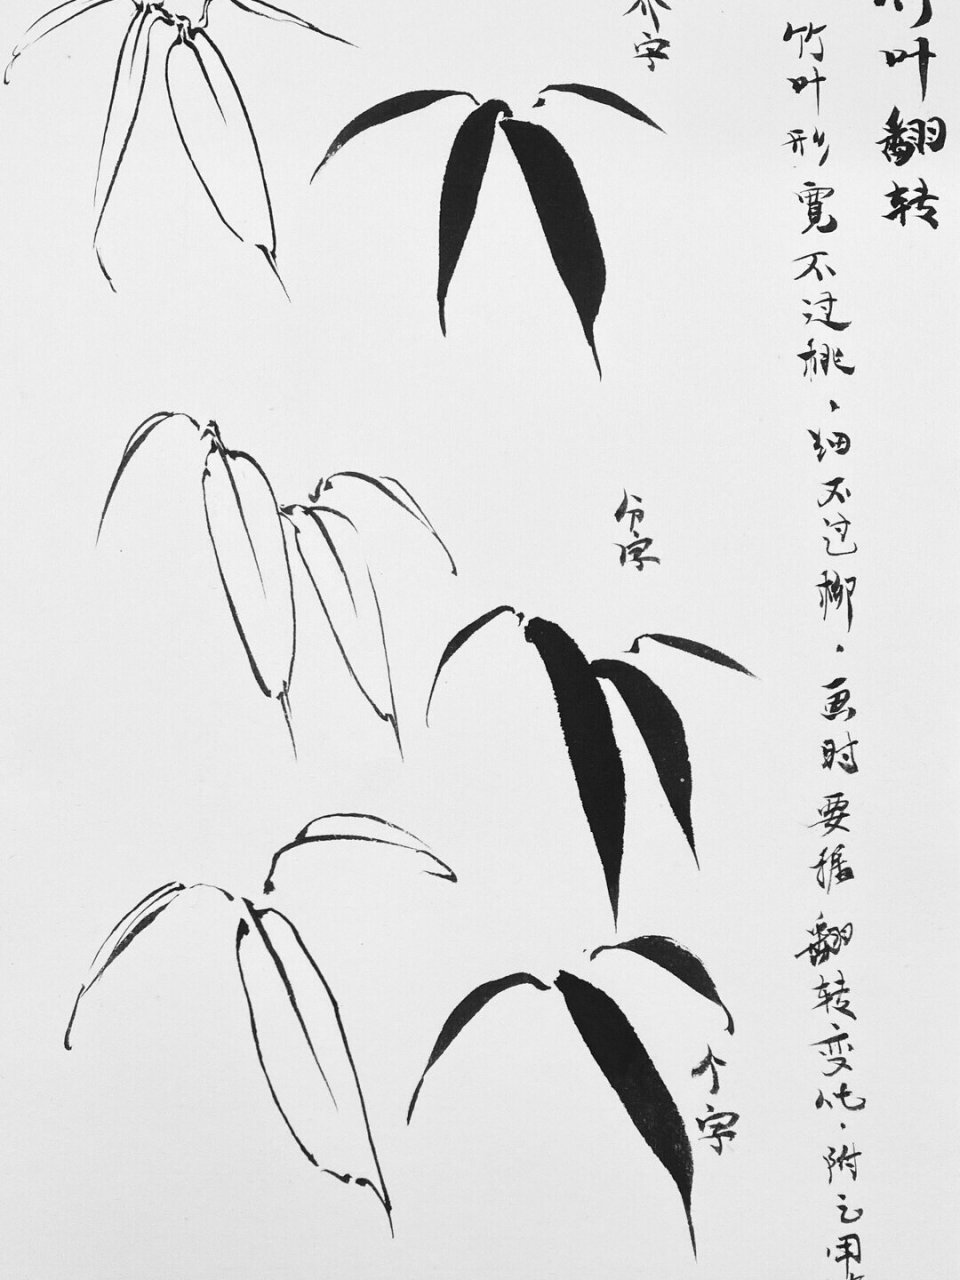 竹叶翻转
竹叶形寬不过桃，细不过柳，画时要据翻转变化，附之用
介字
分字
个字